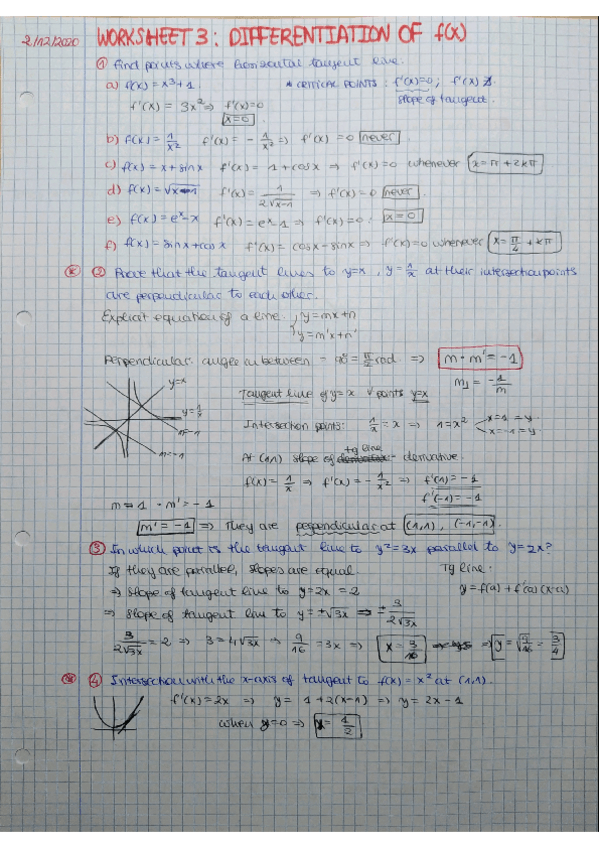 2/12/2020 WORKSHEET 3: DIFFERENTIATION OF f(x)
① Find points where horizontal tangent line.
a) f(x) = x³+1. * CRITICAL POINTS: f'(x)=0; f'(x) ∄
f'(x) = 3x² ⇒ f'(x)=0 slope of tangent.
x=0
b) f(x) = 1/x² f'(x) = - 1/x² ⇒ f'(x) = 0 never.
c) f(x) = x + sinx f'(x) = 1+cosx ⇒ f'(x)=0 whenever x=π+2kπ
d) f(x) = √x-1 f'(x) = 1/2√x-1 ⇒ f'(x)=0 never.
e) f(x) = eˣ-x f'(x) = eˣ-1 ⇒ f'(x)=0: x=0
f) f(x) = sinx+cosx f'(x) = cosx-sinx ⇒ f'(x)=0 whenever x=π/4+kπ
② Prove that the tangent lines to y=x, y=1/x at their intersection points
are perpendicular to each other.
Explicit equation of a line. y=mx+n
y=m'x+n'
Perpendicular: angle in between = 90º = π/2 rad ⇒ m·m' = -1
m⊥ = -1/m
y=x
Tangent line of y=x ∀ points y=x
y=1/x
Intersection points: 1/x = x ⇒ 1=x² x=1=y.
x=-1=y.
m=-1
At (1,1) slope of tg line = derivative.
m=-1
f(x) = 1/x ⇒ f'(x) = - 1/x² ⇒ f'(1) = -1
f'(-1) = -1
m=1 · m'=-1
m'=-1 ⇒ They are perpendicular at (1,1), (-1,-1).
③ In which point is the tangent line to y²=3x parallel to y=2x?
If they are parallel, slopes are equal. Tg line:
⇒ Slope of tangent line to y=2x = 2 y=f(a)+f'(a)(x-a)
⇒ Slope of tangent line to y=±√3x ⇒ ± 3/2√3x
3/2√3x = 2 ⇒ 3=4√3x ⇒ 9/16 = 3x ⇒ x=3/16 ⇒ y=√9/16 = 3/4
④ Intersection with the x-axis of tangent to f(x)=x² at (1,1).
f'(x)=2x ⇒ y= 1+2(x-1) ⇒ y=2x-1
when y=0 ⇒ x=1/2